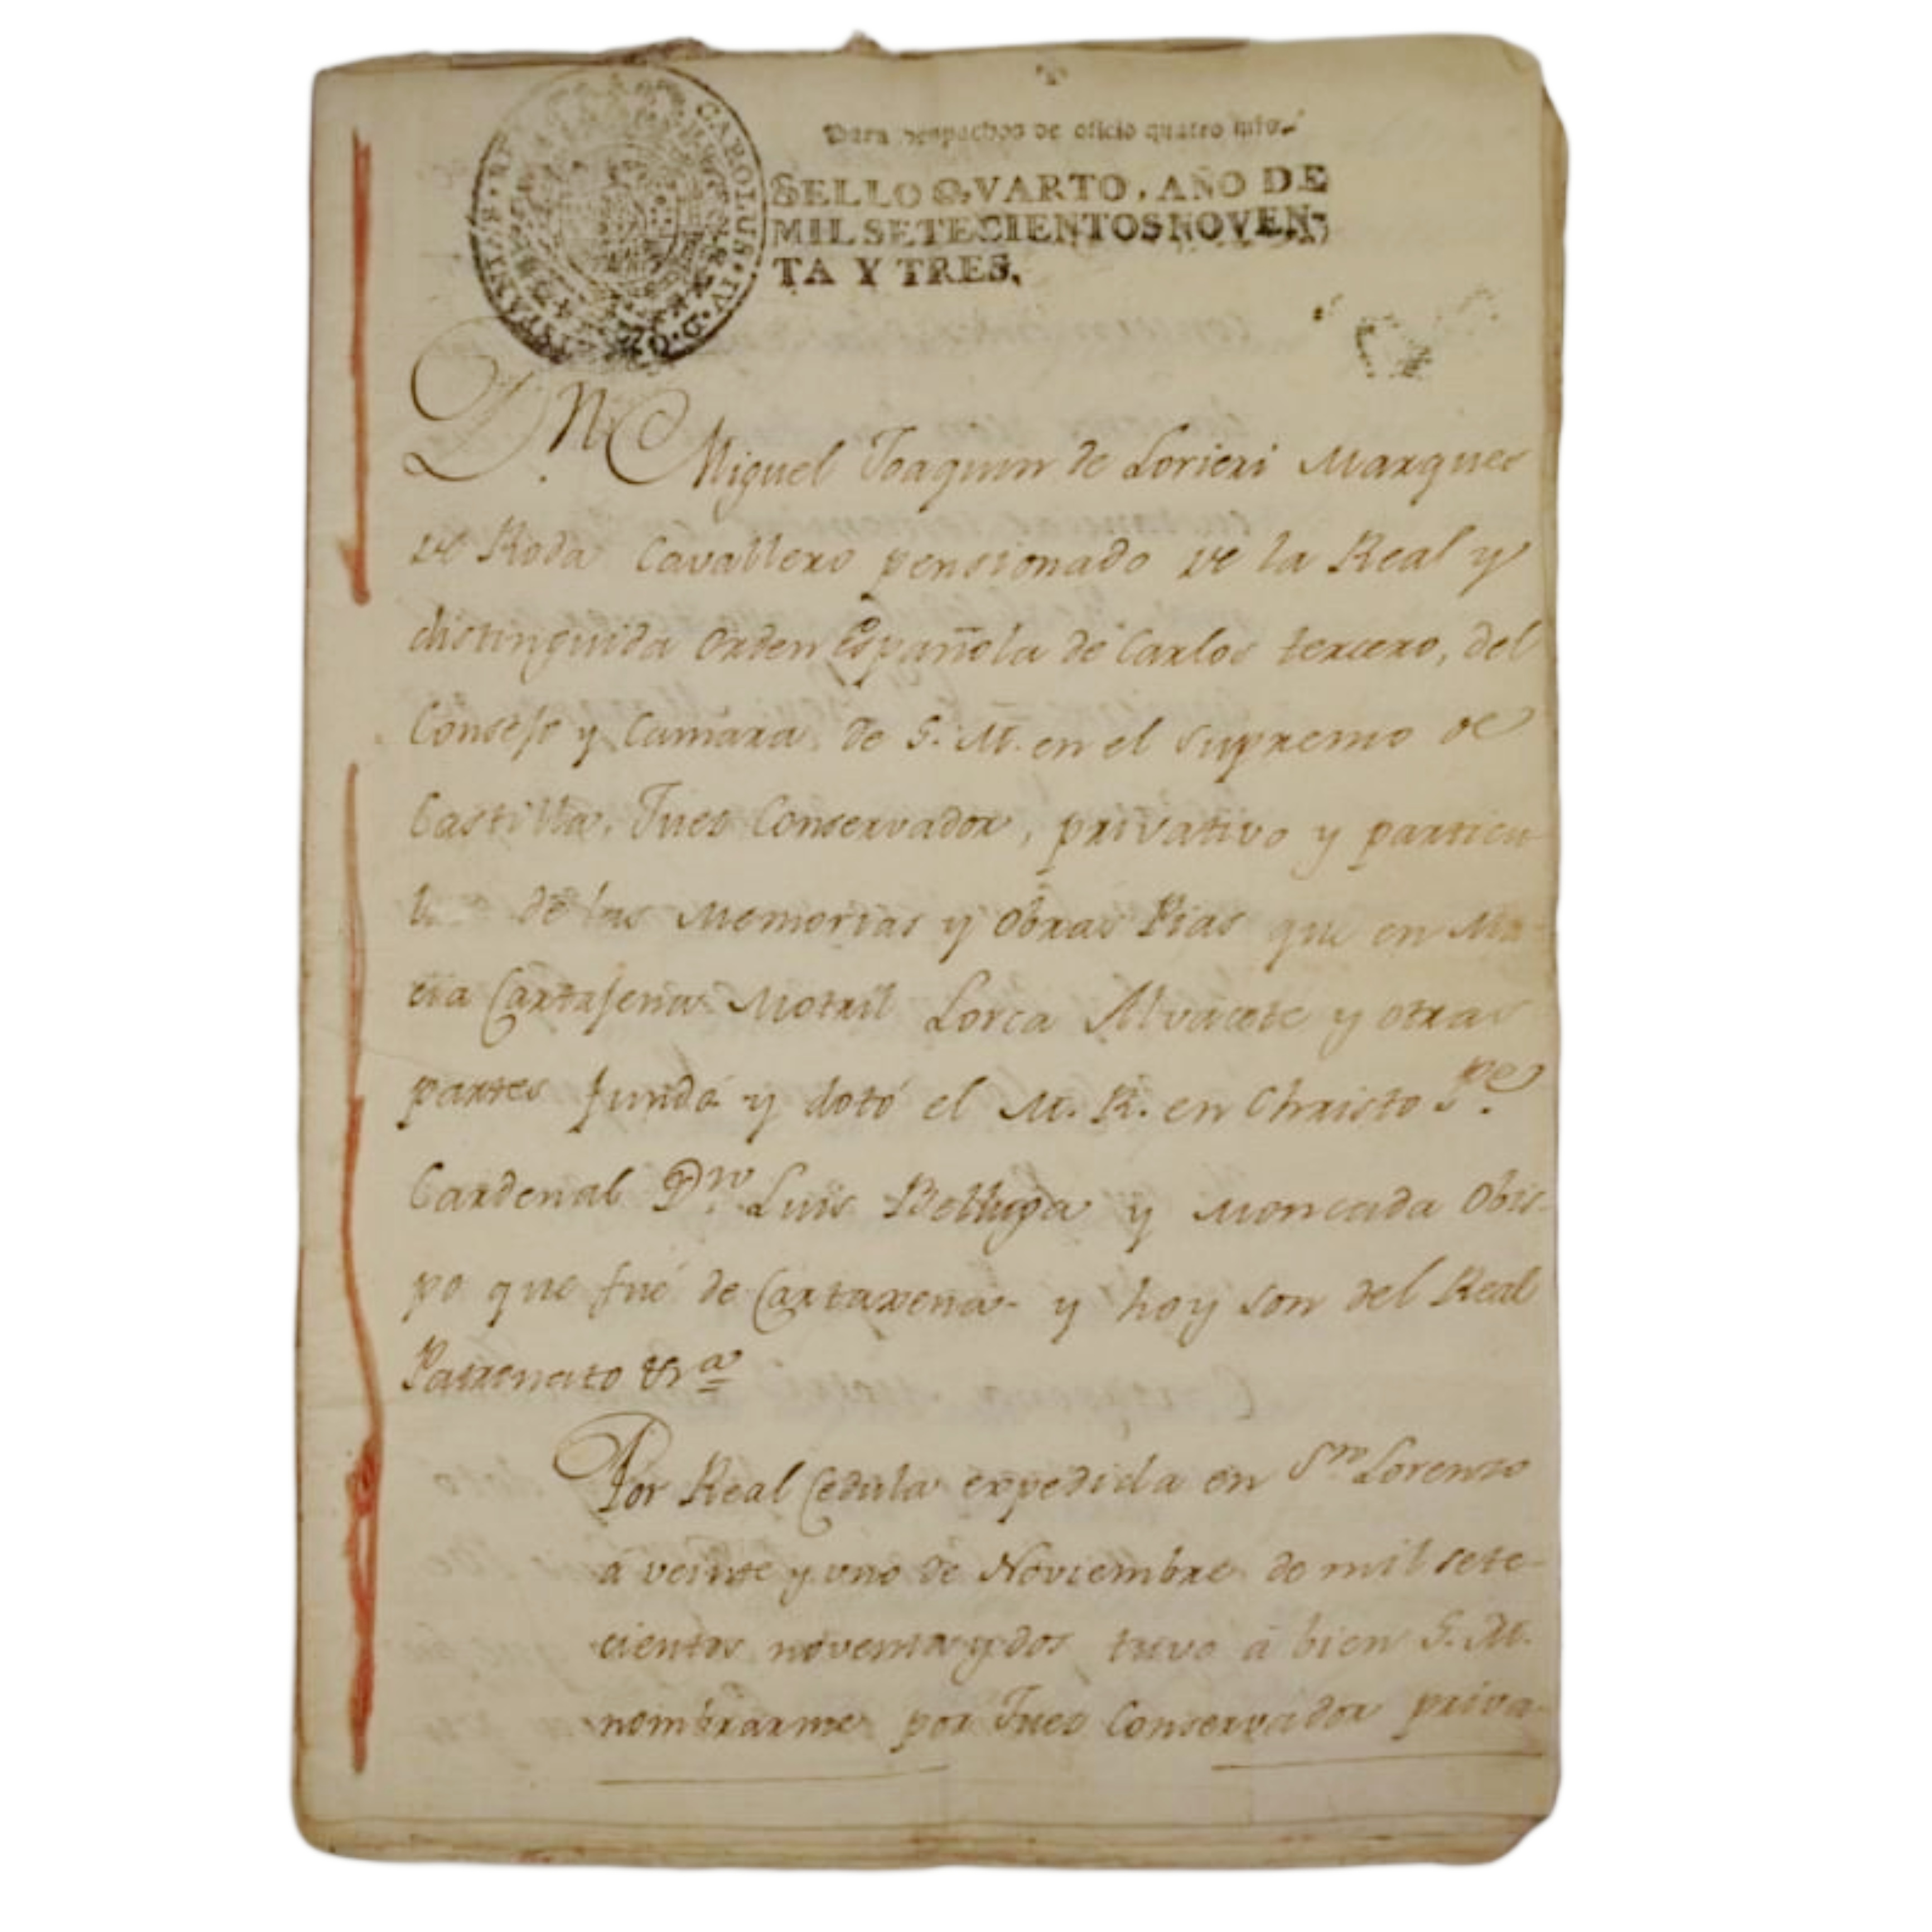 Para despachos de oficio quatro mrs.
CAROLUS·IV·D·G· HISPANIAR·R
SELLO QVARTO, AÑO DE
MIL SETECIENTOS NOVEN-
TA Y TRES.
Dn. Miguel Joaquin de Lorieri Marques
de Roda Cavallero pensionado de la Real y
distinguida Orden Española de Carlos tercero, del
Consejo y Camara de S. M. en el Supremo de
Castilla, Juez Conservador, privativo y particu
de las Memorias y Obras Pias que en Mu-
cia Cartajena Motril Lorca Alvacete y otras
partes fundó y dotó el M. R. en Christo Pe.
Cardenal Dn. Luis Belluga y Moncada Obis-
po que fué de Cartaxena y hoy son del Real
Patronato &ra
Por Real Cedula expedida en Sn Lorenzo
á veinte y uno de Noviembre de mil sete-
cientos noventa y dos tuvo á bien S. M.
nombrarme por Juez Conservador priva-